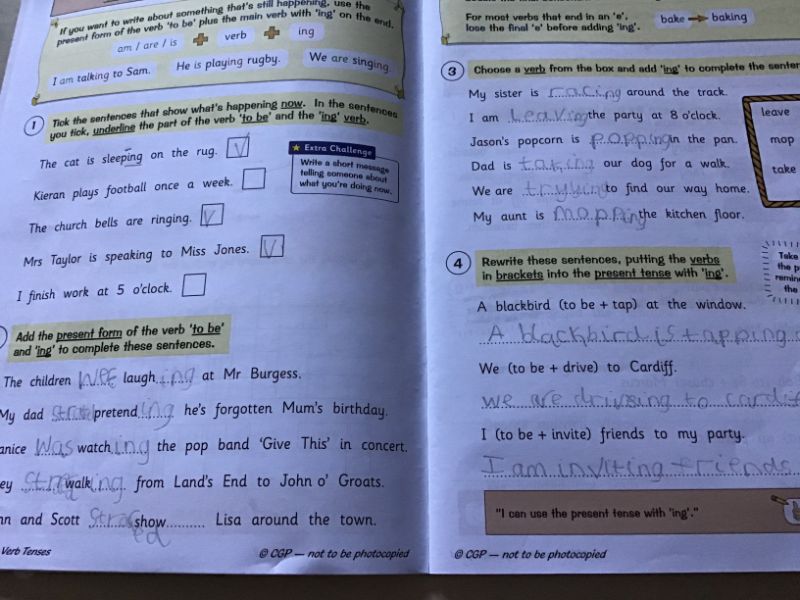 If you want to write about something that's still happening, use the
present form of the verb 'to be' plus the main verb with 'ing' on the end.
am / are / is + verb + ing
I am talking to Sam. He is playing rugby. We are singing.
1 Tick the sentences that show what's happening now. In the sentences
you tick, underline the part of the verb 'to be' and the 'ing' verb.
The cat is sleeping on the rug.
Kieran plays football once a week.
The church bells are ringing.
Mrs Taylor is speaking to Miss Jones.
I finish work at 5 o'clock.
Extra Challenge
Write a short message
telling someone about
what you're doing now.
Add the present form of the verb 'to be'
and 'ing' to complete these sentences.
The children laugh ing at Mr Burgess.
My dad pretend ing he's forgotten Mum's birthday.
anice Was watch ing the pop band 'Give This' in concert.
ey walk ing from Land's End to John o' Groats.
nn and Scott show Lisa around the town.
ed
Verb Tenses
© CGP — not to be photocopied
For most verbs that end in an 'e',
lose the final 'e' before adding 'ing'.
bake baking
3 Choose a verb from the box and add 'ing' to complete the senten
My sister is racing around the track.
I am leaving the party at 8 o'clock.
Jason's popcorn is popping in the pan.
Dad is taking our dog for a walk.
We are to find our way home.
My aunt is mopping the kitchen floor.
leave
mop
take
4 Rewrite these sentences, putting the verbs
in brackets into the present tense with 'ing'.
Take
the p
remin
the
A blackbird (to be + tap) at the window.
A blackbird is tapping
We (to be + drive) to Cardiff.
we are drivsing to cardif
I (to be + invite) friends to my party.
I am inviting friends
"I can use the present tense with 'ing'."
© CGP — not to be photocopied